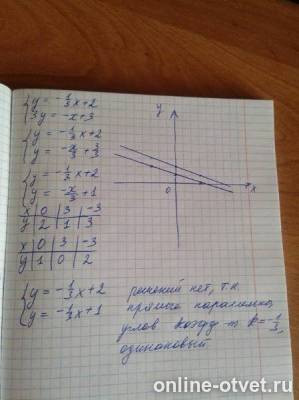 {y = -1/3x+2
{3y = -x+3
{y = -1/3x+2
{y = -x/3 + 3/3
{y = -1/3x+2
{y = -x/3 + 1
x | 0 | 3 | -3
y | 2 | 1 | 3
x | 0 | 3 | -3
y | 1 | 0 | 2
y
0
x
{y = -1/3x+2
{y = -1/3x+1
решений нет, т.к.
прямые
углов коэфф k=-1/3,
одинаковый
online-otvet.ru